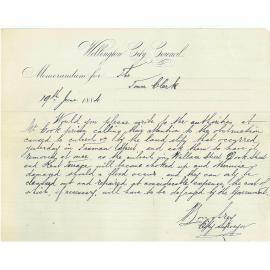 Wellington City Council.
Memorandum for The
Town Clerk
19th June 1884
Would you please write to the authorities at
Mt Cook prison calling their attention to the obstruction
caused to culvert by the land slip that occurred
yesterday in Street, and ask them to have it
removed at once as the culvert from Wallace Street, Hook Street
and will become choked up and otherwise
damaged should a flood occur and they can only be
cleaned out and repaired at considerable expense the cost of
which, if necessary, will have to be defrayed by the Government
City Surveyor